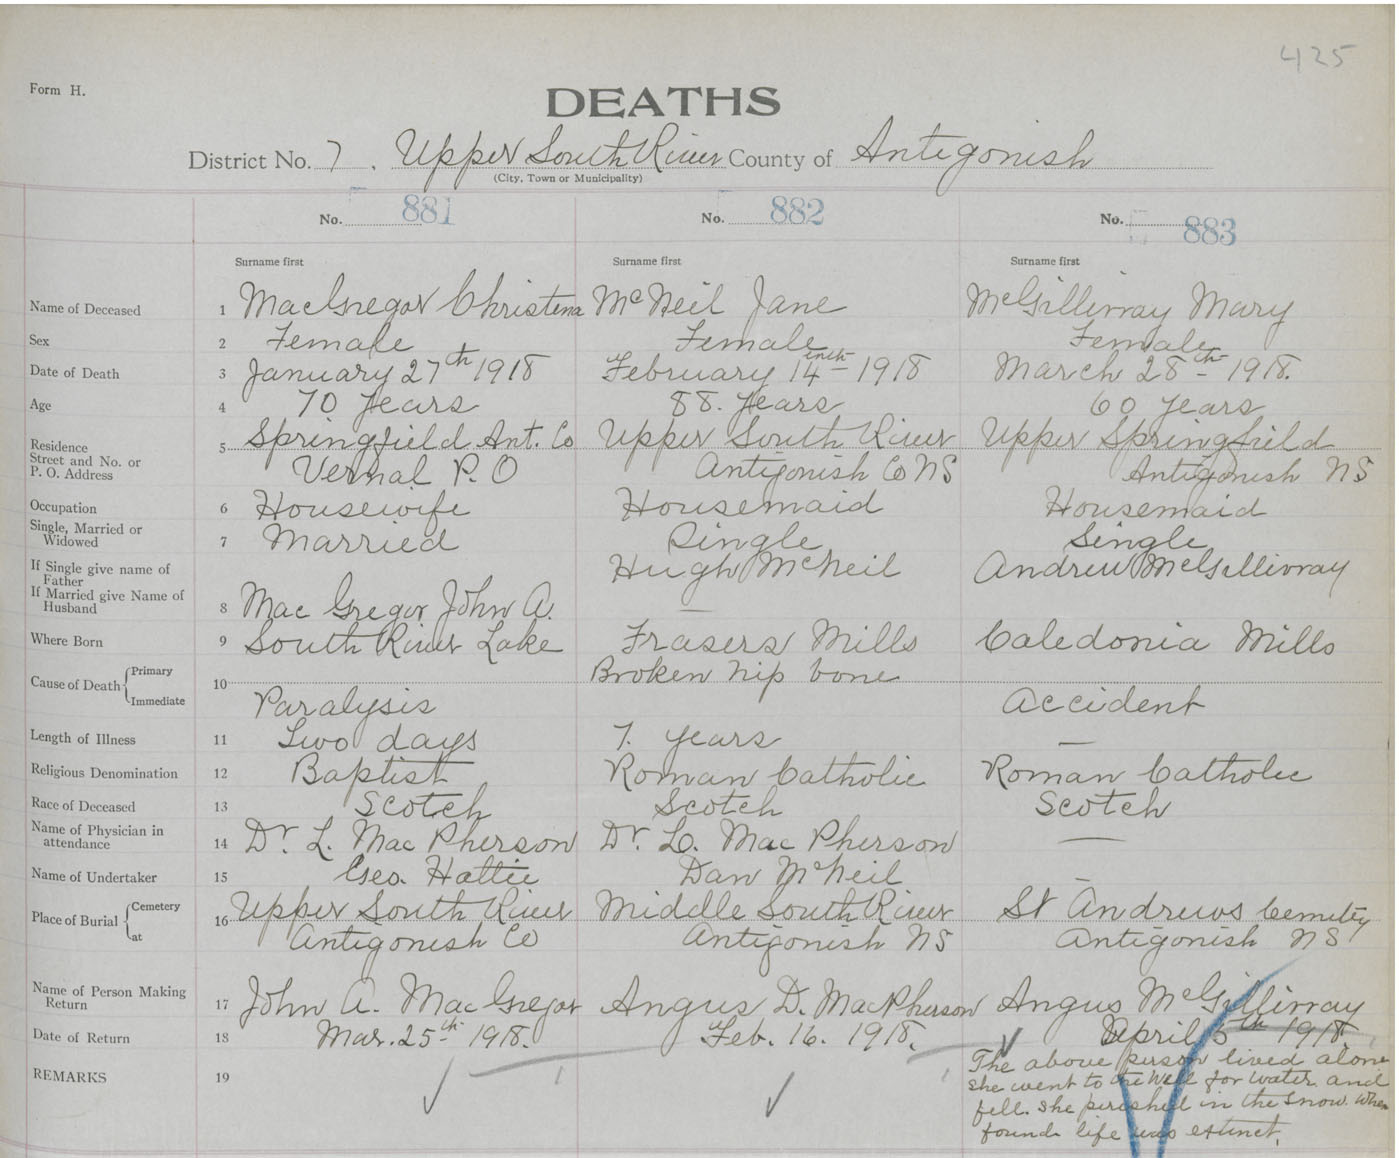 425
Form H.
DEATHS
District No. 7. Upper South River County of Antigonish
(City, Town or Municipality)
No. 881 No. 882 No. 883
Surname first Surname first Surname first
Name of Deceased 1 MacGregor Christena McNeil Jane McGillivray Mary
Sex 2 Female Female Female
Date of Death 3 January 27th 1918 February 14enth 1918 March 28th 1918.
Age 4 70 years 88. years 60 years
Residence
Street and No. or
P. O. Address
5 Springfield Ant. Co Upper South River Upper Springfield
Vernal P.O Antigonish Co NS Antigonish NS
Occupation 6 Housewife Housemaid Housemaid
Single, Married or
Widowed 7 Married Single Single
If Single give name of
Father Hugh McNeil Andrew McGillivray
If Married give Name of
Husband 8 Mac Gregor John A. —
Where Born 9 South River Lake Frasers Mills Caledonia Mills
Cause of Death { Primary 10 Broken hip bone
Immediate Paralysis Accident
Length of Illness 11 Two days 7. years —
Religious Denomination 12 Baptist Roman Catholic Roman Catholic
Race of Deceased 13 Scotch Scotch Scotch
Name of Physician in
attendance 14 Dr. L. Mac Pherson Dr. L. Mac Pherson —
Name of Undertaker 15 Geo. Hattie Dan McNeil —
Place of Burial { Cemetery 16 Upper South River Middle South River St Andrews Cemitey
at Antigonish Co Antigonish NS Antigonish NS
Name of Person Making
Return 17 John A. MacGregor Angus D. MacPherson Angus McGillivray
Date of Return 18 Mar. 25th 1918. Feb. 16. 1918. April 5th 1918.
REMARKS 19
The above person lived alone
she went to the Well for water and
fell. She perished in the snow. When
found life was extinct.